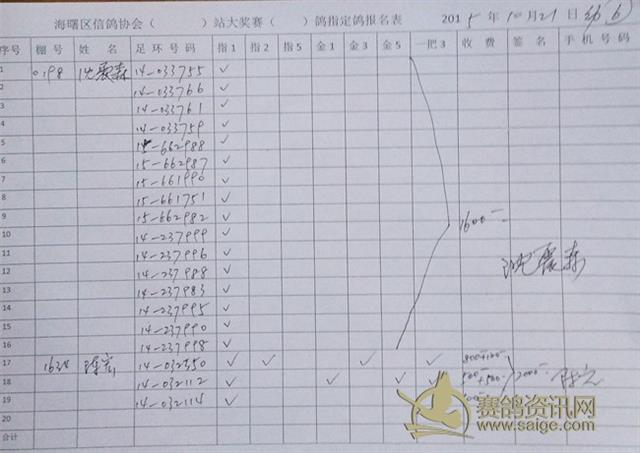 海曙区信鸽协会（ ）站大奖赛（ ）鸽指定鸽报名表 2015年10月27日
序号 棚号 姓名 足环号码 指1 指2 指5 金1 金2 金5 一把3 收费 签名 手机号码
1 0198 沈震森 14-033755 ✓
2 14-033766 ✓
3 14-033761 ✓
4 14-033759 ✓
5 15-662988 ✓
6 15-662987 ✓
7 15-661990 ✓
8 15-661751 ✓
9 15-662982 ✓ 1600-
10 14-237999 ✓
11 14-237996 ✓ 沈震森
12 14-237988 ✓
13 14-237983 ✓
14 14-237995 ✓
15 14-237990 ✓
16 14-237998 ✓
17 14-032350 ✓ ✓ ✓ ✓
18 14-032112 ✓ ✓ ✓ ✓ 2000-
19 14-032114 ✓
20
合计
赛鸽资讯网
www.saige.com